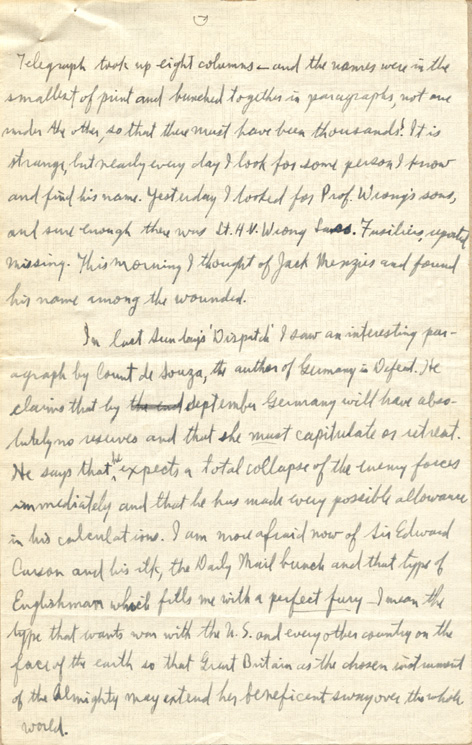 7
Telegraph took up eight columns – and the names were in the
smallest of print and bunched together in paragraphs, not one
under the other, so that there must have been thousands! It is
strange, but nearly every day I look for some person I know
and find his name. Yesterday I looked for Prof. Wrong's sons,
and sure enough there was Lt. H.V. Wrong Lancs. Fusiliers, reported
missing. This morning I thought of Jack Menzies and found
his name among the wounded.
In last Sunday's 'Dispatch' I saw an interesting par-
agraph by Count de Souza, the author of Germany in Defeat. He
claims that by the end September Germany will have abso-
lutely no reserves and that she must capitulate or retreat.
He says that he expects a total collapse of the enemy forces
immediately and that he has made every possible allowance
in his calculations. I am more afraid now of Sir Edward
Carson and his ilk, the Daily Mail bunch and that type of
Englishman which fills me with a perfect fury – I mean the
type that wants war with the U.S. and every other country on the
face of the earth so that Great Britain as the chosen instrument
of the Almighty may extend her beneficent sway over the whole
world.